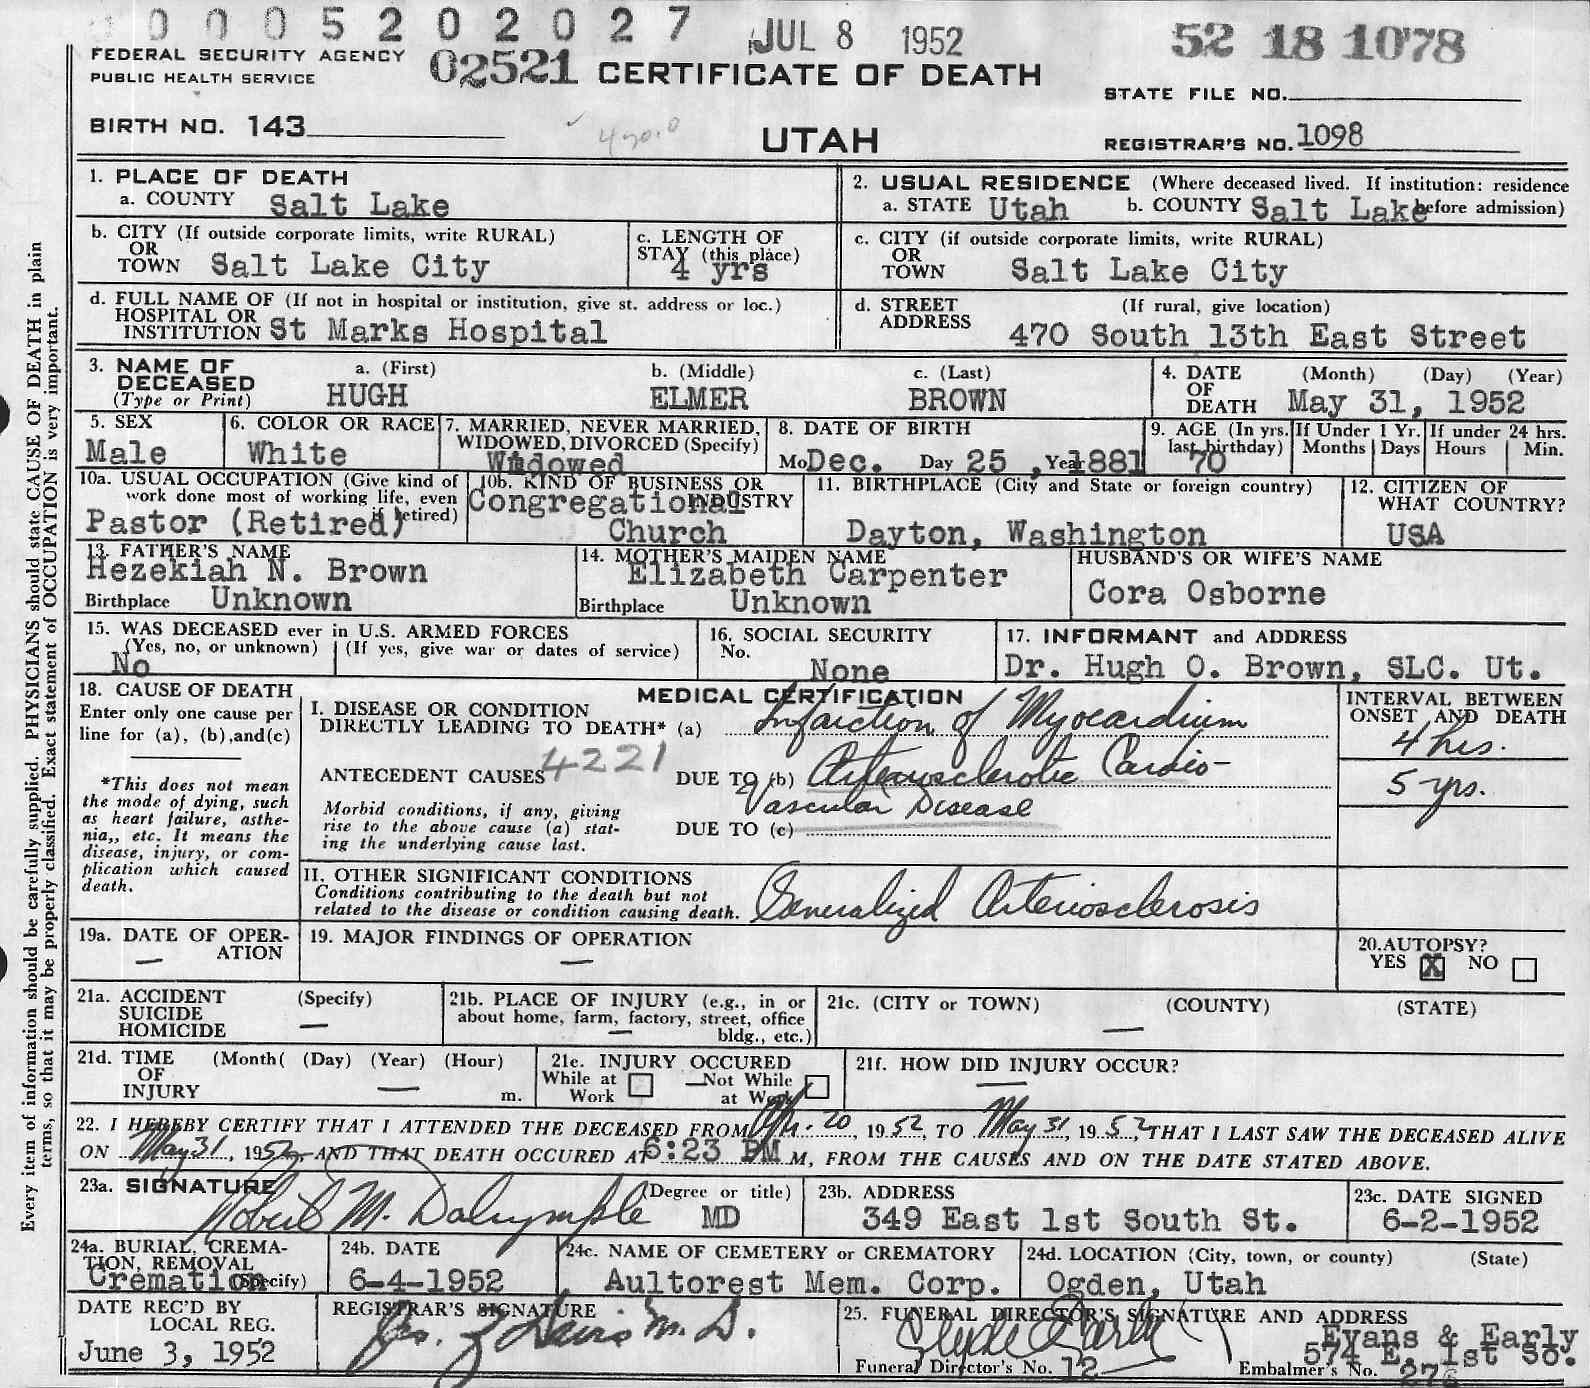 0 0 0 5 2 0 2 0 2 7 JUL 8 1952 52 18 1078
FEDERAL SECURITY AGENCY
PUBLIC HEALTH SERVICE
02521 CERTIFICATE OF DEATH
STATE FILE NO.
BIRTH NO. 143
UTAH
REGISTRAR'S NO. 1098
1. PLACE OF DEATH
a. COUNTY Salt Lake
2. USUAL RESIDENCE (Where deceased lived. If institution: residence before admission)
a. STATE Utah b. COUNTY Salt Lake
b. CITY (If outside corporate limits, write RURAL)
OR
TOWN Salt Lake City
c. LENGTH OF
STAY (this place)
4 yrs
c. CITY (if outside corporate limits, write RURAL)
OR
TOWN Salt Lake City
d. FULL NAME OF (If not in hospital or institution, give st. address or loc.)
HOSPITAL OR
INSTITUTION St Marks Hospital
d. STREET (If rural, give location)
ADDRESS 470 South 13th East Street
3. NAME OF
DECEASED
(Type or Print)
a. (First) b. (Middle) c. (Last)
HUGH ELMER BROWN
4. DATE (Month) (Day) (Year)
OF
DEATH May 31, 1952
5. SEX
Male
6. COLOR OR RACE
White
7. MARRIED, NEVER MARRIED,
WIDOWED, DIVORCED (Specify)
Widowed
8. DATE OF BIRTH
Mo Dec. Day 25, Year 1881
9. AGE (In yrs. last birthday)
70
If Under 1 Yr.
Months Days
If under 24 hrs.
Hours Min.
10a. USUAL OCCUPATION (Give kind of
work done most of working life, even
if retired)
Pastor (Retired)
10b. KIND OF BUSINESS OR
INDUSTRY
Congregational
Church
11. BIRTHPLACE (City and State or foreign country)
Dayton, Washington
12. CITIZEN OF
WHAT COUNTRY?
USA
13. FATHER'S NAME
Hezekiah N. Brown
Birthplace Unknown
14. MOTHER'S MAIDEN NAME
Elizabeth Carpenter
Birthplace Unknown
HUSBAND'S OR WIFE'S NAME
Cora Osborne
15. WAS DECEASED ever in U.S. ARMED FORCES
(Yes, no, or unknown) (If yes, give war or dates of service)
No
16. SOCIAL SECURITY
No.
None
17. INFORMANT and ADDRESS
Dr. Hugh O. Brown, SLC. Ut.
18. CAUSE OF DEATH
Enter only one cause per
line for (a), (b), and (c)
*This does not mean
the mode of dying, such
as heart failure, asthe-
nia,, etc. It means the
disease, injury, or com-
plication which caused
death.
MEDICAL CERTIFICATION
I. DISEASE OR CONDITION
DIRECTLY LEADING TO DEATH* (a) Infarction of Myocardium
INTERVAL BETWEEN
ONSET AND DEATH
4 hrs.
ANTECEDENT CAUSES 4221 DUE TO (b) Arteriosclerotic Cardio-
Vascular Disease
5 yrs.
Morbid conditions, if any, giving
rise to the above cause (a) stat-
ing the underlying cause last.
DUE TO (c)
II. OTHER SIGNIFICANT CONDITIONS
Conditions contributing to the death but not
related to the disease or condition causing death.
Generalized Arteriosclerosis
19a. DATE OF OPER-
ATION
—
19. MAJOR FINDINGS OF OPERATION
—
20. AUTOPSY?
YES X NO
21a. ACCIDENT (Specify)
SUICIDE
HOMICIDE —
21b. PLACE OF INJURY (e.g., in or
about home, farm, factory, street, office
bldg., etc.)
—
21c. (CITY or TOWN) (COUNTY) (STATE)
—
21d. TIME (Month( (Day) (Year) (Hour)
OF
INJURY — m.
21e. INJURY OCCURED
While at
Work
—Not While
at Work
21f. HOW DID INJURY OCCUR?
—
22. I HEREBY CERTIFY THAT I ATTENDED THE DECEASED FROM Apr. 20, 1952, TO May 31, 1952, THAT I LAST SAW THE DECEASED ALIVE
ON May 31, 1952, AND THAT DEATH OCCURED AT 6:23 PM M, FROM THE CAUSES AND ON THE DATE STATED ABOVE.
23a. SIGNATURE (Degree or title)
Robert M. Dalrymple MD
23b. ADDRESS
349 East 1st South St.
23c. DATE SIGNED
6-2-1952
24a. BURIAL, CREMA-
TION, REMOVAL
(Specify)
Cremation
24b. DATE
6-4-1952
24c. NAME OF CEMETERY or CREMATORY
Aultorest Mem. Corp.
24d. LOCATION (City, town, or county) (State)
Ogden, Utah
DATE REC'D BY
LOCAL REG.
June 3, 1952
REGISTRAR'S SIGNATURE
M.D.
25. FUNERAL DIRECTOR'S SIGNATURE AND ADDRESS
Clyde Early
Evans & Early
574 E. 1st So.
Funeral Director's No. 12 Embalmer's No.
Every item of information should be carefully supplied. PHYSICIANS should state CAUSE OF DEATH in plain
terms, so that it may be properly classified. Exact statement of OCCUPATION is very important.